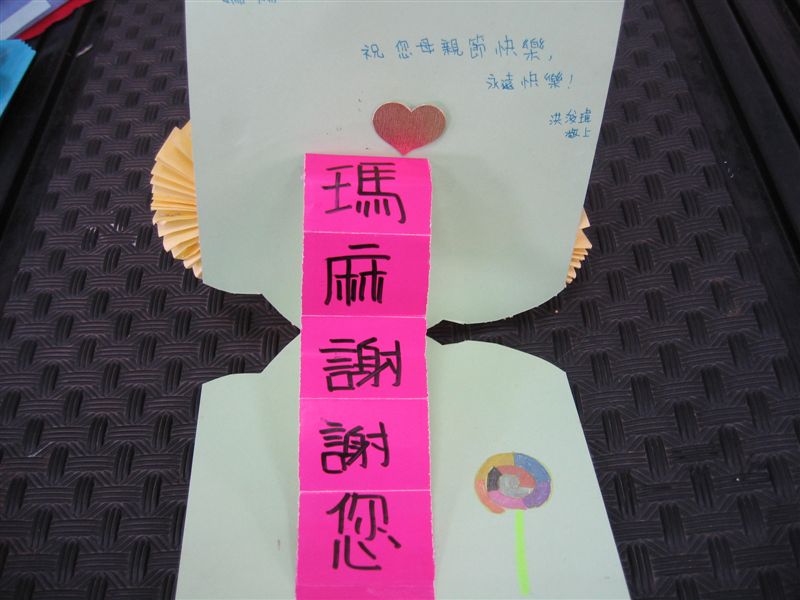 祝您母親節快樂,
永遠快樂!
洪浚瑋
敬上
瑪麻謝謝您